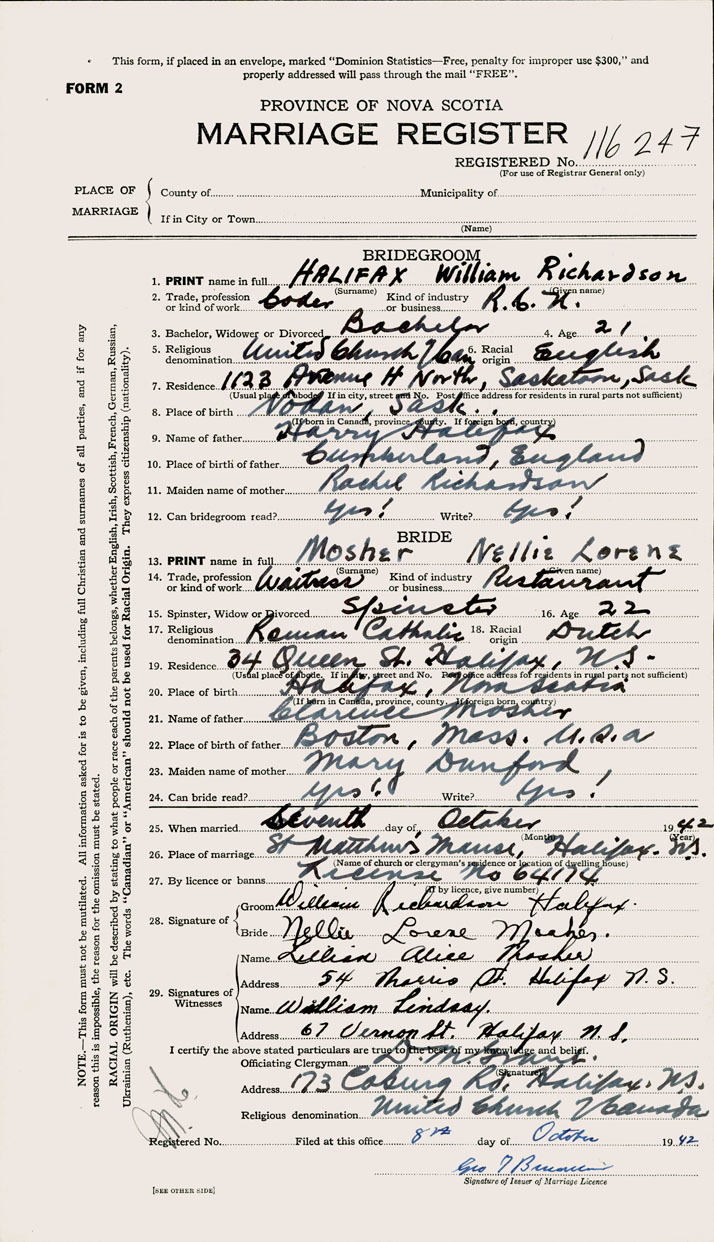 This form, if placed in an envelope, marked "Dominion Statistics—Free, penalty for improper use $300," and
properly addressed will pass through the mail "FREE".
FORM 2
PROVINCE OF NOVA SCOTIA
MARRIAGE REGISTER
REGISTERED No. 116247
(For use of Registrar General only)
PLACE OF MARRIAGE
County of Municipality of
If in City or Town
(Name)
BRIDEGROOM
1. PRINT name in full HALIFAX William Richardson
(Surname) (Given name)
2. Trade, profession or kind of work Coder Kind of industry or business R.C.N.
3. Bachelor, Widower or Divorced Bachelor 4. Age 21
5. Religious denomination United Church / Can 6. Racial origin English
7. Residence 1123 Avenue H North, Saskatoon, Sask
(Usual place of abode. If in city, street and No. Post office address for residents in rural parts not sufficient)
8. Place of birth Sask.
(If born in Canada, province, county. If foreign born, country)
9. Name of father Harry Halifax
10. Place of birth of father Cumberland, England
11. Maiden name of mother Rachel Richardson
12. Can bridegroom read? Yes! Write? Yes!
BRIDE
13. PRINT name in full Mosher Nellie Lorene
(Surname) (Given name)
14. Trade, profession or kind of work Waitress Kind of industry or business Restaurant
15. Spinster, Widow or Divorced Spinster 16. Age 22
17. Religious denomination Roman Catholic 18. Racial origin Dutch
19. Residence 34 Queen St. Halifax, N.S.
(Usual place of abode. If in city, street and No. Post office address for residents in rural parts not sufficient)
20. Place of birth Halifax, Nova Scotia
(If born in Canada, province, county. If foreign born, country)
21. Name of father Clarence Mosher
22. Place of birth of father Boston, Mass. U.S.a
23. Maiden name of mother Mary Dunford
24. Can bride read? Yes! Write? Yes!
25. When married Seventh day of October 1942
(Month) (Year)
26. Place of marriage St Matthew's Manse, Halifax. N.S.
(Name of church or clergyman's residence or location of dwelling house)
27. By licence or banns License No 64174
(If by licence, give number)
28. Signature of
Groom William Richardson Halifax.
Bride Nellie Lorene Mosher.
29. Signatures of Witnesses
Name Lillian Alice Mosher
Address 54 Morris St. Halifax N.S.
Name William Lindsay.
Address 67 Vernon St. Halifax N.S.
I certify the above stated particulars are true to the best of my knowledge and belief.
Officiating Clergyman D. M.
(Signature)
Address 173 Coburg Rd, Halifax. N.S.
Religious denomination United Church / Canada
Registered No. Filed at this office 8th day of October 1942
Geo
Signature of Issuer of Marriage Licence
[SEE OTHER SIDE]
NOTE.—This form must not be mutilated. All information asked for is to be given, including full Christian and surnames of all parties, and if for any
reason this is impossible, the reason for the omission must be stated.
RACIAL ORIGIN will be described by stating to what people or race each of the parents belongs, whether English, Irish, Scottish, French, German, Russian,
Ukrainian (Ruthenian), etc. The words "Canadian" or "American" should not be used for Racial Origin. They express citizenship (nationality).